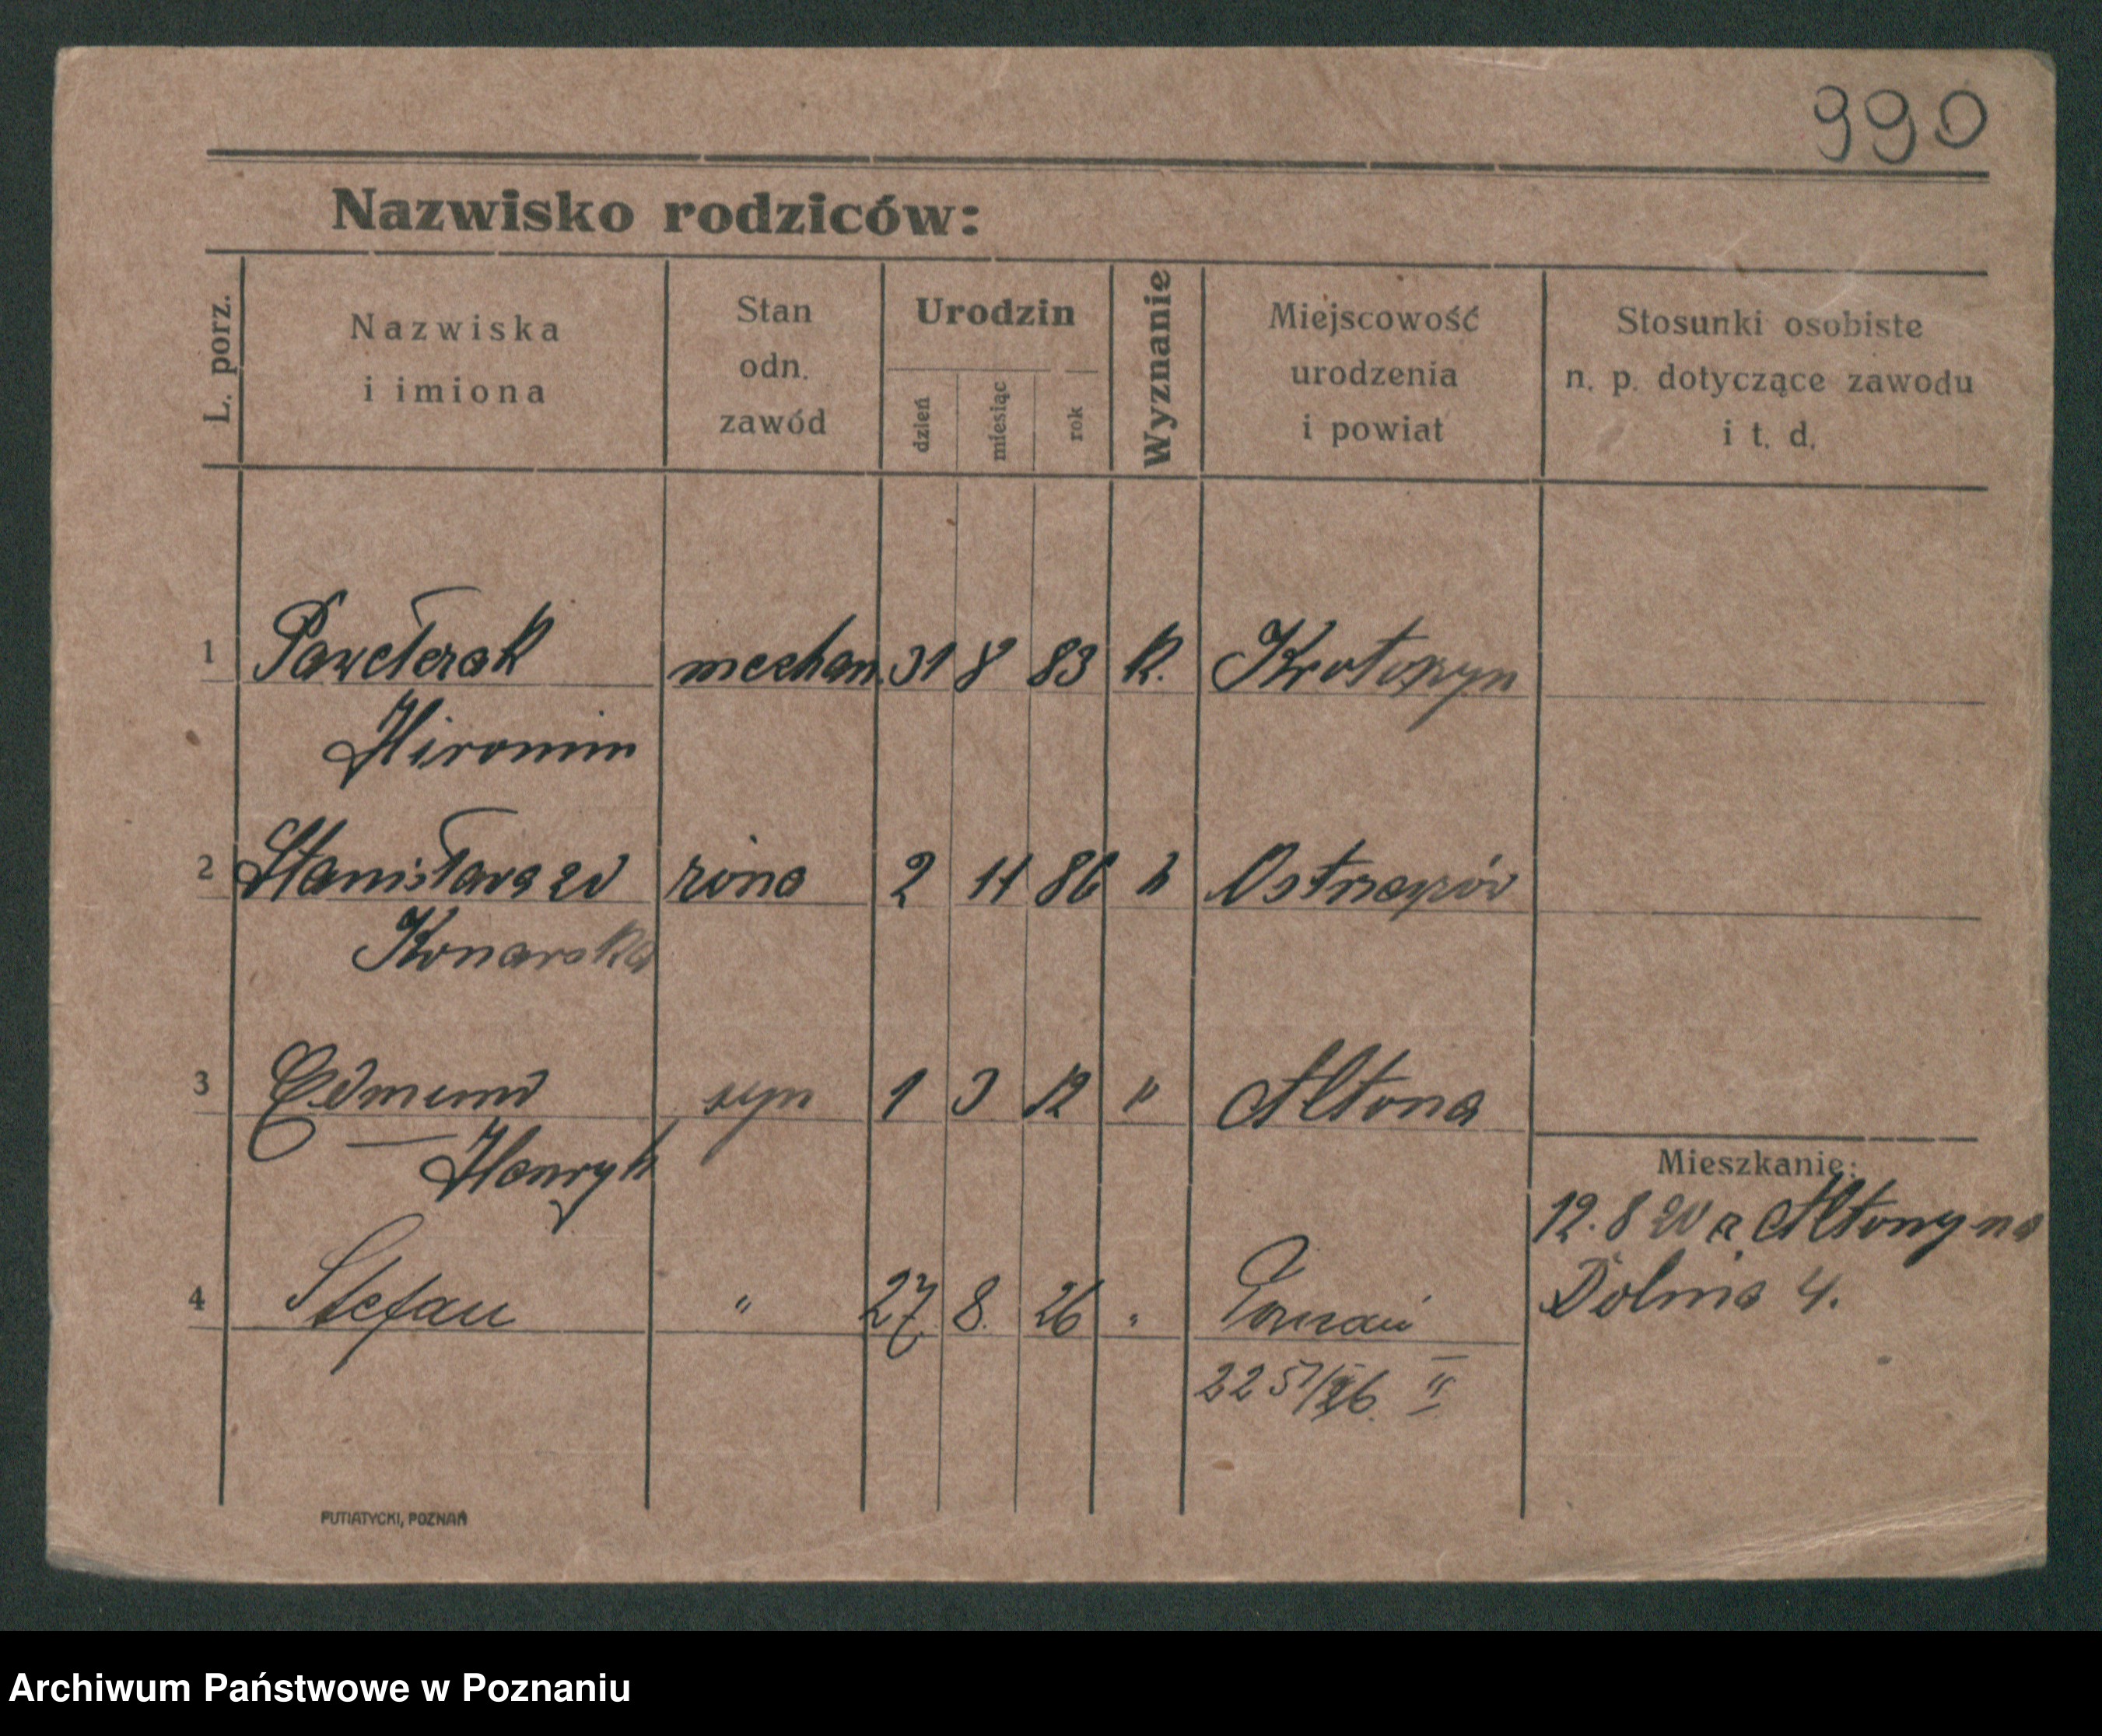 990
Nazwisko rodziców:
L. porz.
Nazwiska
i imiona
Stan
odn.
zawód
Urodzin
dzień
miesiąc
rok
Wyznanie
Miejscowość
urodzenia
i powiat
Stosunki osobiste
n. p. dotyczące zawodu
i t. d.
1 Pawełczak mechan. 31 8 83 k. Krotoszyn
Hironim
2 Stanisława zd żona 2 11 86 k
Konarska
3 Edmund syn 1 3 12 " Altona
Henryk
Mieszkanie:
12. 8 20 z Altony na
Dolna 4.
4 Stefan " 27. 8. 26 " Poznań
II
PUTIATYCKI, POZNAŃ
Archiwum Państwowe w Poznaniu